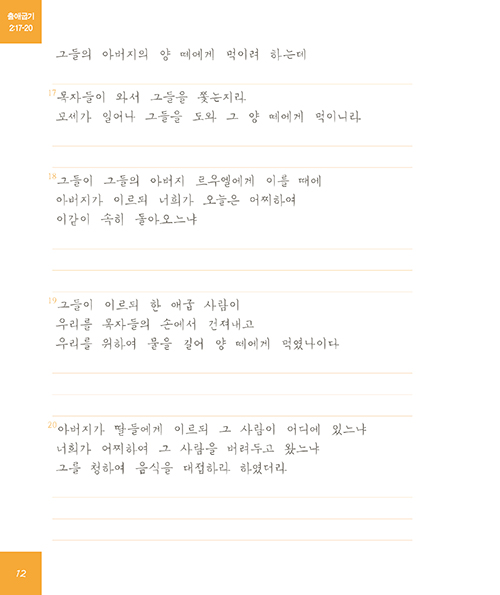 출애굽기
2:17-20
그들의 아버지의 양 떼에게 먹이려 하는데
17 목자들이 와서 그들을 쫓는지라
모세가 일어나 그들을 도와 그 양 떼에게 먹이니라
18 그들이 그들의 아버지 르우엘에게 이를 때에
아버지가 이르되 너희가 오늘은 어찌하여
이같이 속히 돌아오느냐
19 그들이 이르되 한 애굽 사람이
우리를 목자들의 손에서 건져내고
우리를 위하여 물을 길어 양 떼에게 먹였나이다
20 아버지가 딸들에게 이르되 그 사람이 어디에 있느냐
너희가 어찌하여 그 사람을 버려두고 왔느냐
그를 청하여 음식을 대접하라 하였더라
12